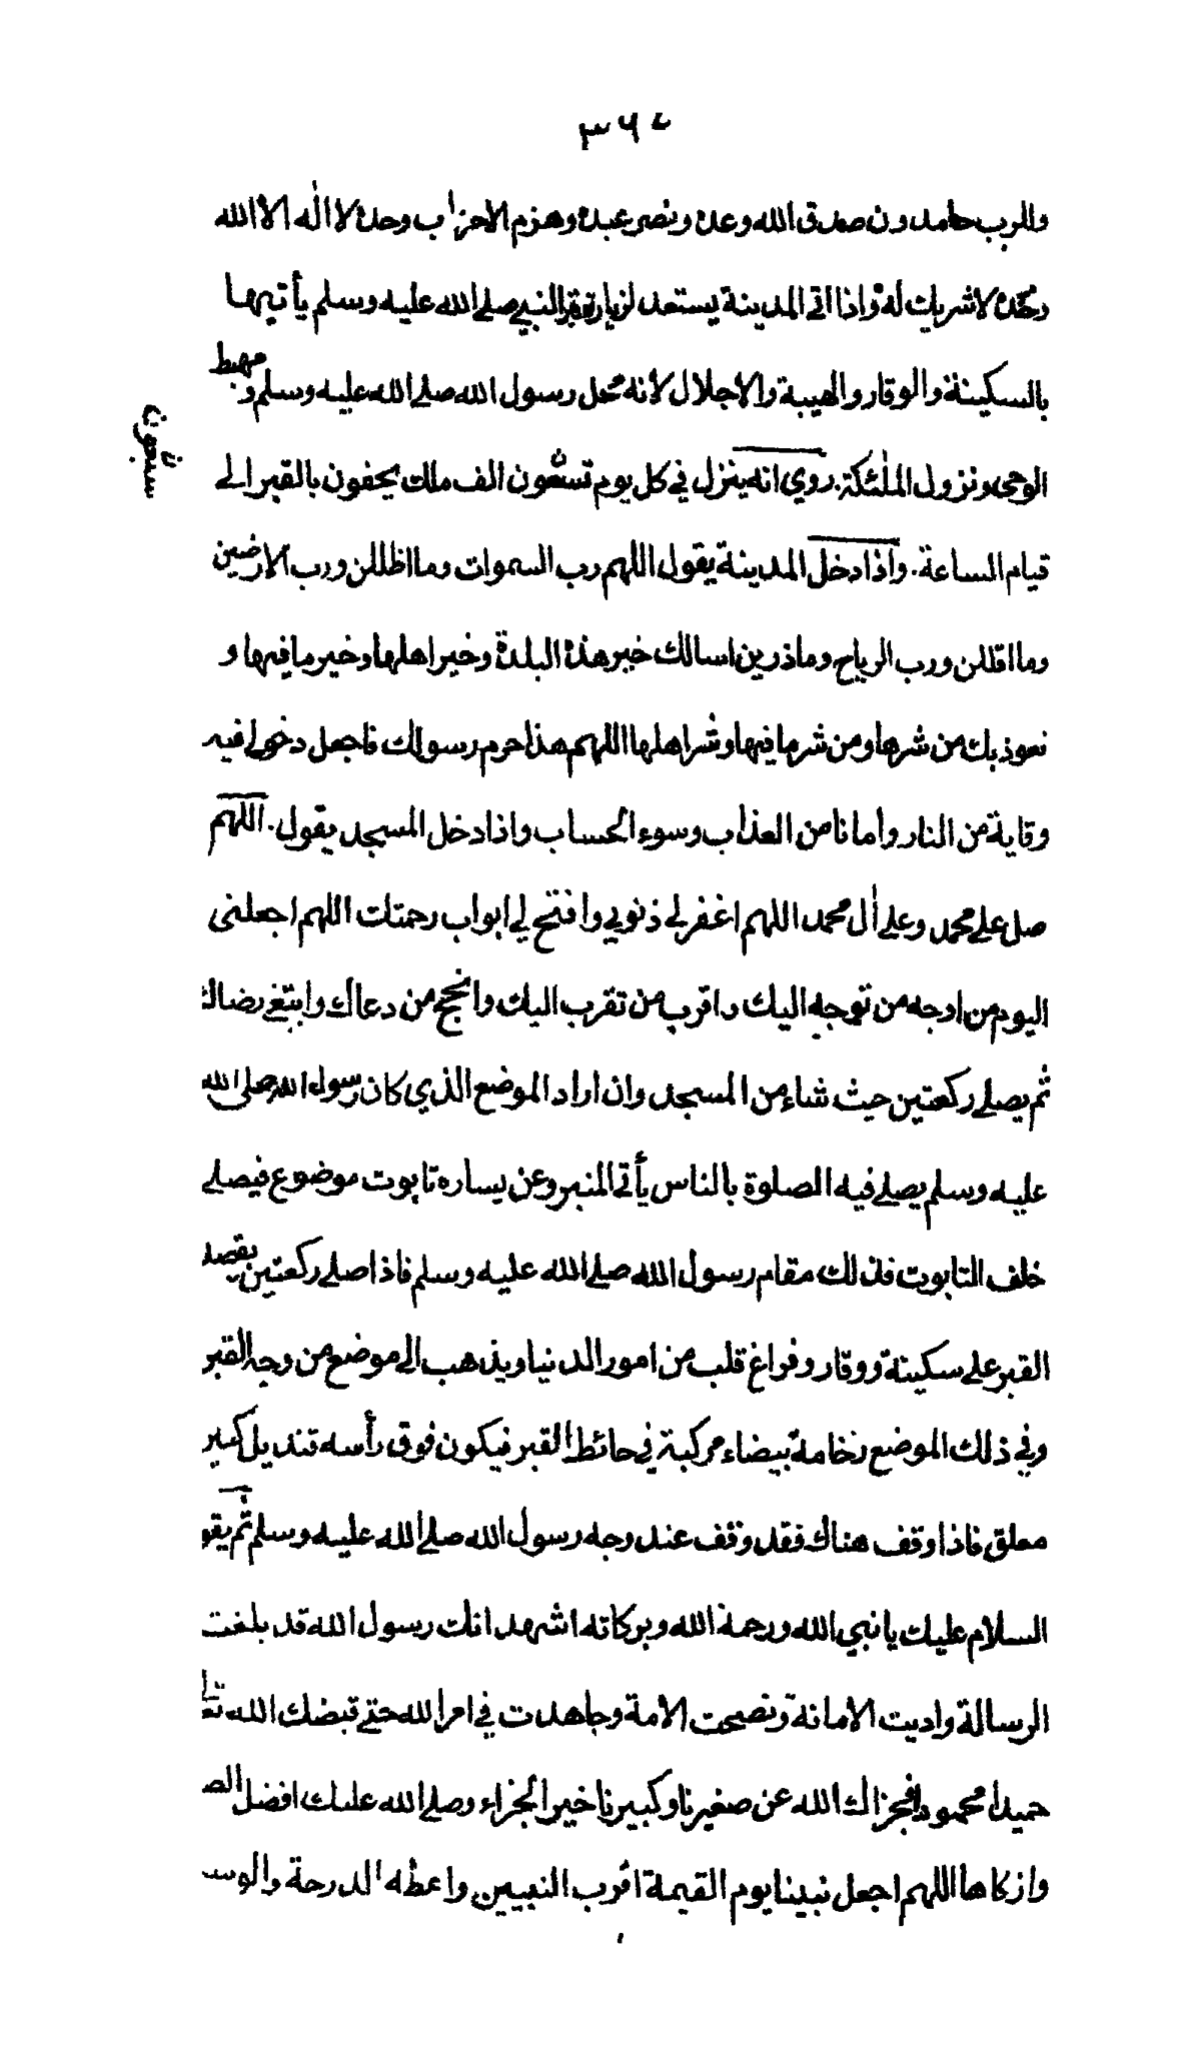 ٣٦٧
وللرب حامدون صدق الله وعده ونصر عبده وهزم الاحزاب وحده لا اله الا الله
وحده لا شريك له واذا اتى المدينة يستعد لزيارة قبر النبي صلے الله عليه وسلم يأتيها
بالسكينة والوقار والهيبة والاجلال لأنه محل رسول الله صلے الله عليه وسلم و مهبط
الوحي ونزول الملٰئكة. روي انه ينزل في كل يوم تسعون الف ملك يحفون بالقبر الى
سبعون ن
قيام الساعة. واذا دخل المدينة يقول اللهم رب السموات وما اظللن ورب الارضين
وما اقللن ورب الرياح وما ذرين اسالك خير هذه البلدة وخير اهلها وخير ما فيها و
نعوذ بك من شرها ومن شر ما فيها وشر اهلها اللهم هذا حرم رسولك فاجعل دخولي فيه
وقاية من النار وامانا من العذاب وسوء الحساب واذا دخل المسجد يقول. اللهم
صل على محمد وعلى اٰل محمد اللهم اغفر لي ذنوبي وافتح لي ابواب رحمتك اللهم اجعلنى
اليوم من اوجه من توجه اليك واقرب من تقرب اليك وانجح من دعاك وابتغى رضاك
ثم يصلے ركعتين حيث شاء من المسجد وان اراد الموضع الذي كان رسول الله صلى الله
عليه وسلم يصلے فيه الصلوة بالناس يأتى المنبر وعن يساره تابوت موضوع فيصلے
خلف التابوت فذلك مقام رسول الله صلے الله عليه وسلم فاذا صلے ركعتين يقصد
القبر على سكينة ووقار وفراغ قلب من امور الدنيا ويذهب الى موضع من وجه القبر
وفي ذلك الموضع رخامة بيضاء مركبة في حائط القبر فيكون فوق رأسه قنديل كبير
معلق فاذا وقف هناك فقد وقف عند وجه رسول الله صلے الله عليه وسلم ثم يقو
السلام عليك يا نبي الله ورحمة الله وبركاته اشهد انك رسول الله قد بلغت
الرسالة واديت الامانة ونصحت الامة وجاهدت في امر الله حتے قبضك الله تعا
حميدا محمودا فجزاك الله عن صغيرنا وكبيرنا خير الجزاء وصلے الله عليك افضل الص
وازكاها اللهم اجعل نبينا يوم القيمة اقرب النبيين واعطه الدرجة والوس